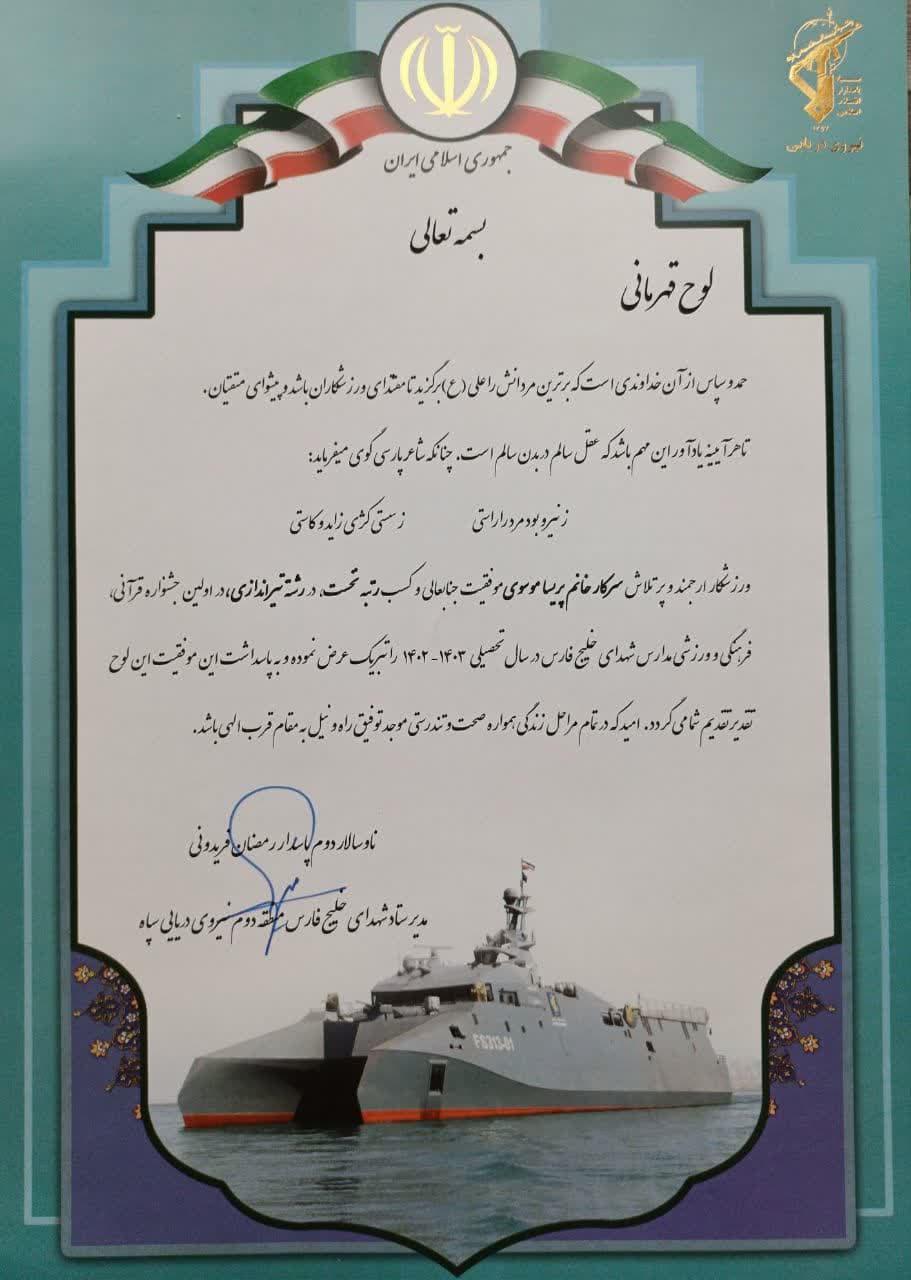 جمهوری اسلامی ایران
سپاه
پاسداران
انقلاب
اسلامی
۱۳۵۷
نیروی دریایی
بسمه تعالی
لوح قهرمانی
حمد و سپاس از آن خداوندی است که برترین مردانش را علی (ع) برگزید تا مقتدای ورزشکاران باشد و پیشوای متقیان.
تا هر آیینه یادآور این مهم باشد که عقل سالم در بدن سالم است. چنانکه شاعر پارسی گوی میفرماید:
ز نیرو بود مرد را راستی ز سستی کژی زاید و کاستی
ورزشکار ارجمند و پر تلاش سرکار خانم پریسا موسوی موفقیت جنابعالی و کسب رتبه نخست، در رشته تیراندازی، در اولین جشنواره قرآنی،
فرهنگی و ورزشی مدارس شهدای خلیج فارس در سال تحصیلی ۱۴۰۳-۱۴۰۲ را تبریک عرض نموده و به پاسداشت این موفقیت این لوح
تقدیر تقدیم شما می گردد. امید که در تمام مراحل زندگی همواره صحت و تندرستی موجد توفیق راه و نیل به مقام قرب الهی باشد.
ناوسالار دوم پاسدار رمضان فریدونی
مدیر ستاد شهدای خلیج فارس منطقه دوم نیروی دریایی سپاه
FS313-01